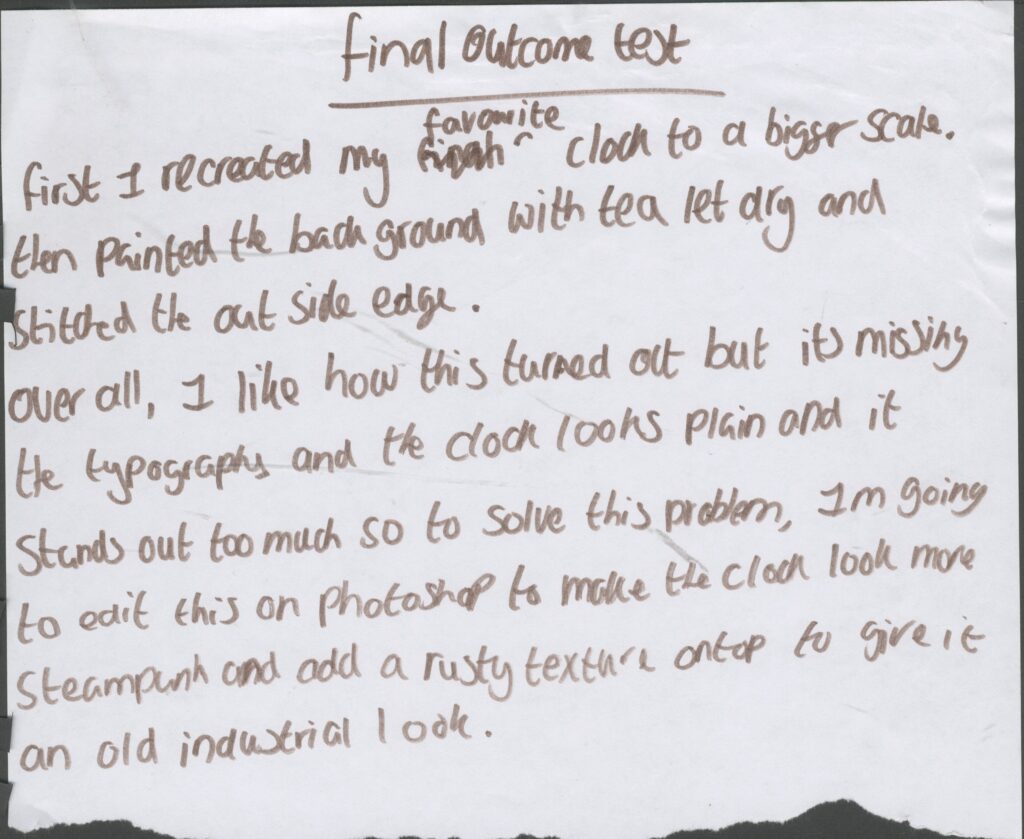 final outcome test
first I recreated my favourite clock to a bigger scale.
then painted the back ground with tea let dry and
stitched the out side edge.
over all, I like how this turned out but its missing
the typography and the clock looks plain and it
stands out too much so to solve this problem, Im going
to edit this on photoshop to make the clock look more
steampunk and add a rusty texture ontop to give it
an old industrial look.